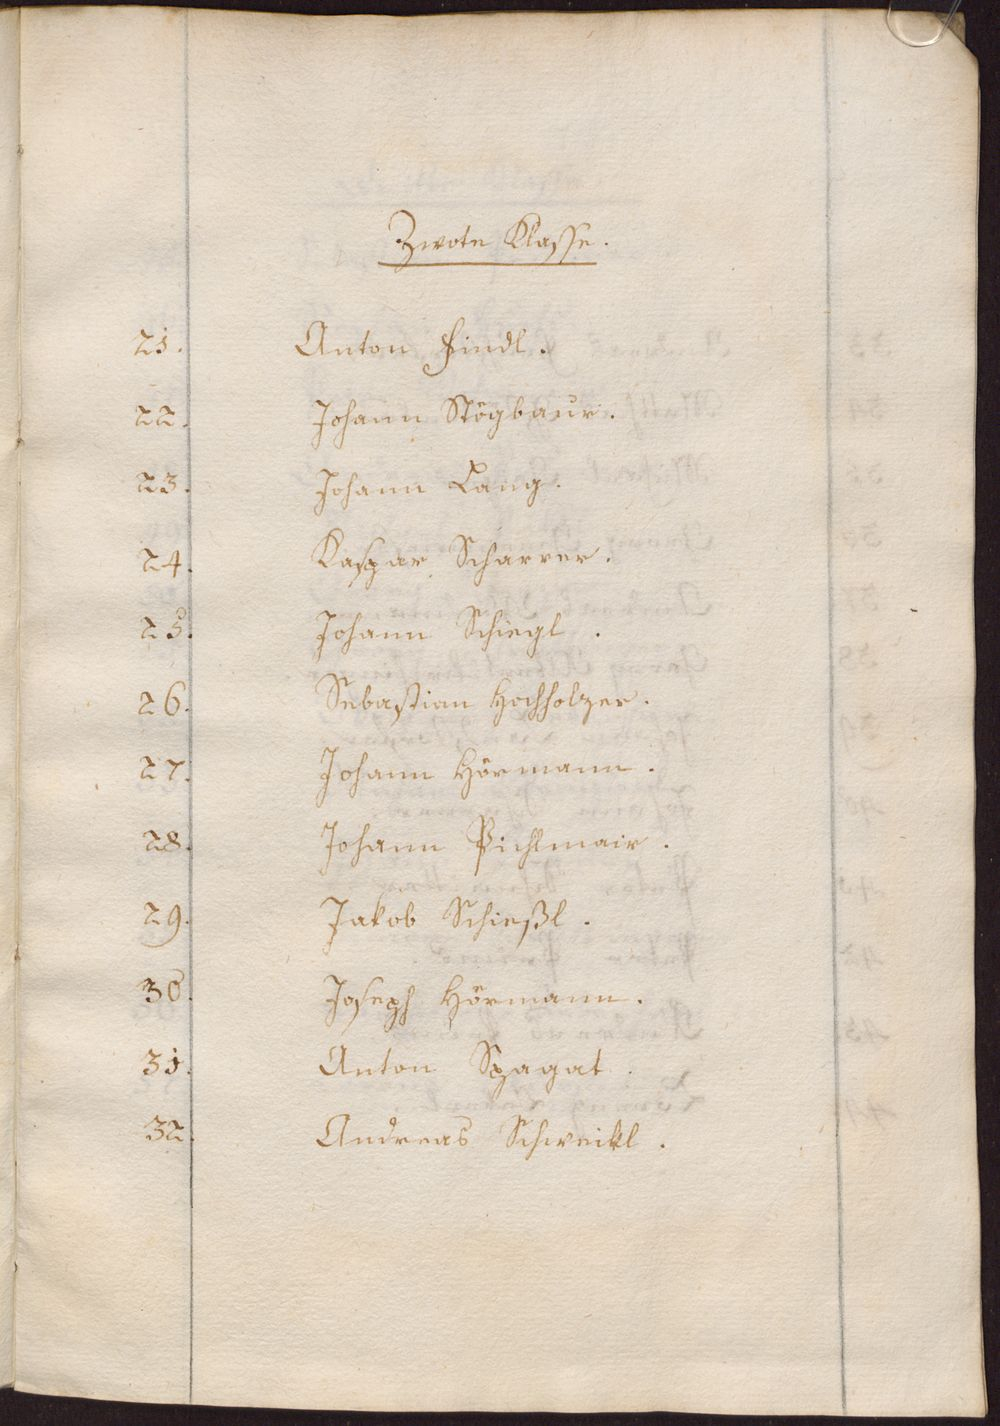 Zwote Klasse.
21. Anton Findl.
22. Johann Stögbaur.
23. Johann Lang.
24. Kaspar Scharrer.
25. Johann Schiegl.
26. Sebastian Hochholzer.
27. Johann Hörmann.
28. Johann Pichlmair.
29. Jakob Schießl.
30. Joseph Hörmann.
31. Anton Spagat.
32. Andreas Schweikl.